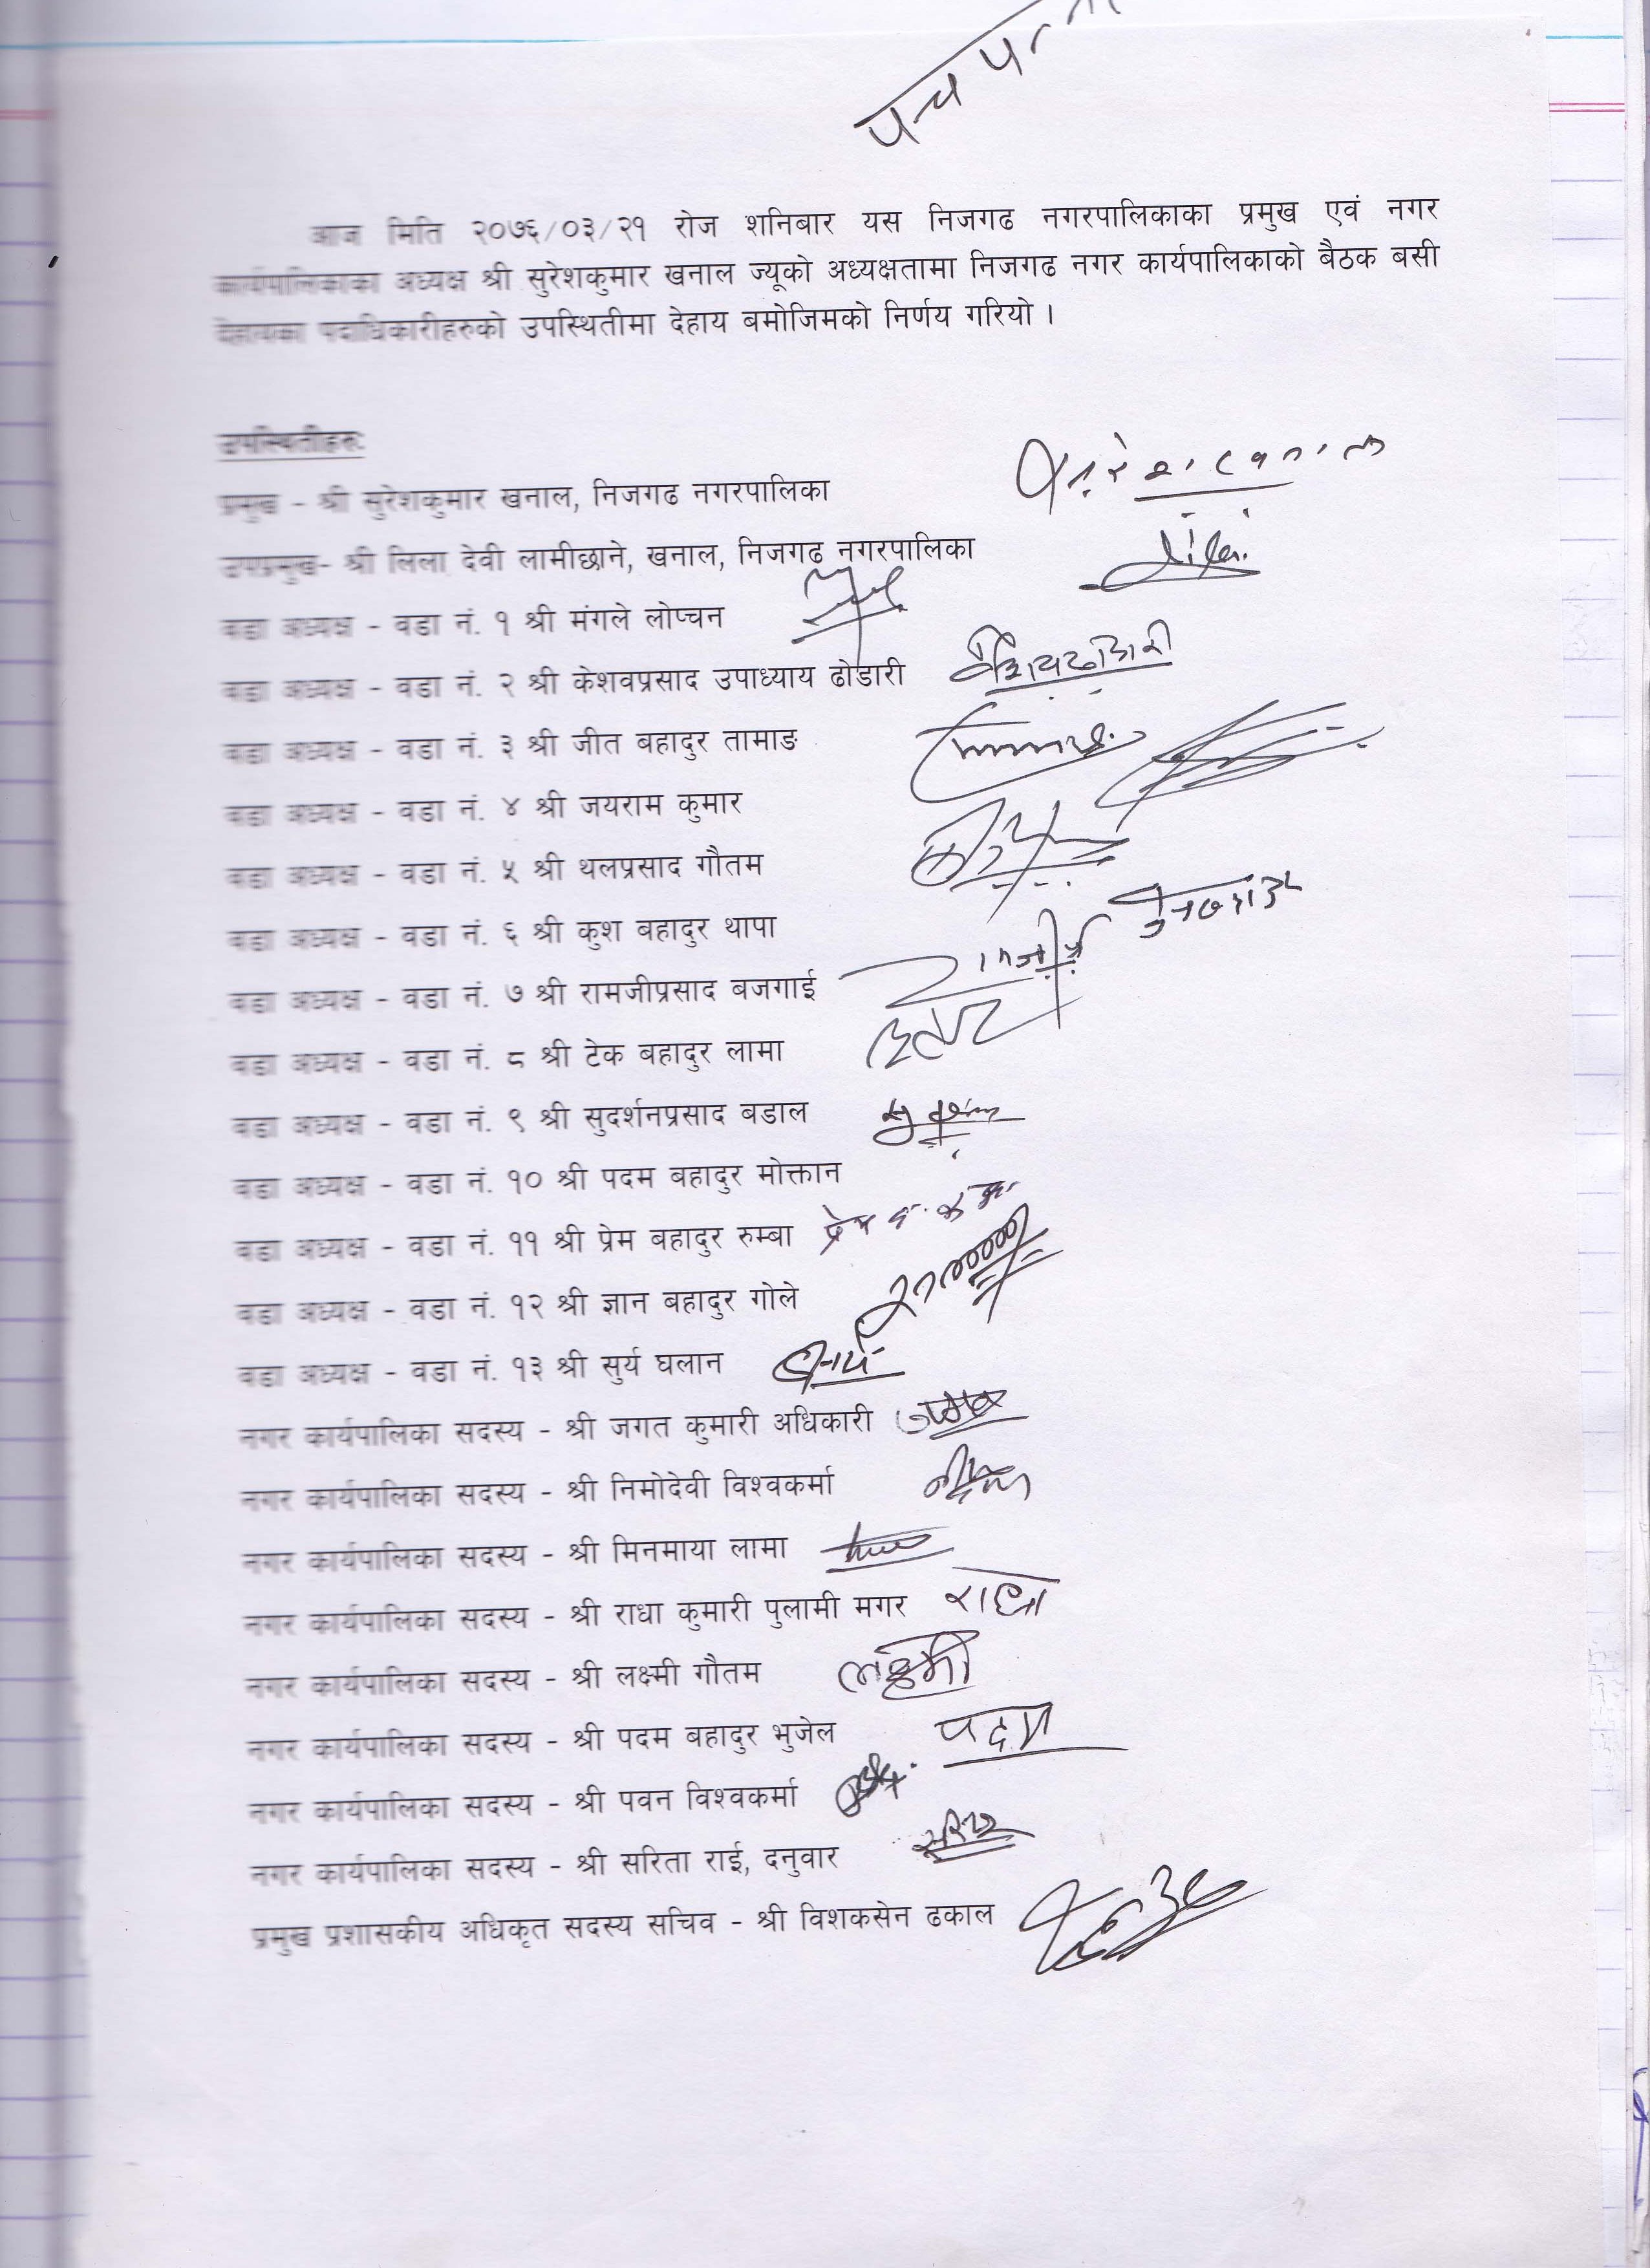 आज मिति २०७६/०३/२१ रोज शनिबार यस निजगढ नगरपालिकाका प्रमुख एवं नगर
कार्यपालिकाका अध्यक्ष श्री सुरेशकुमार खनाल ज्यूको अध्यक्षतामा निजगढ नगर कार्यपालिकाको बैठक बसी
देहायका पदाधिकारीहरुको उपस्थितीमा देहाय बमोजिमको निर्णय गरियो ।
उपस्थितीहरु:
प्रमुख - श्री सुरेशकुमार खनाल, निजगढ नगरपालिका
उपप्रमुख- श्री लिला देवी लामीछाने, खनाल, निजगढ नगरपालिका
वडा अध्यक्ष - वडा नं. १ श्री मंगले लोप्चन
वडा अध्यक्ष - वडा नं. २ श्री केशवप्रसाद उपाध्याय ढोडारी
वडा अध्यक्ष - वडा नं. ३ श्री जीत बहादुर तामाङ
वडा अध्यक्ष - वडा नं. ४ श्री जयराम कुमार
वडा अध्यक्ष - वडा नं. ५ श्री थलप्रसाद गौतम
वडा अध्यक्ष - वडा नं. ६ श्री कुश बहादुर थापा
वडा अध्यक्ष - वडा नं. ७ श्री रामजीप्रसाद बजगाई
वडा अध्यक्ष - वडा नं. ८ श्री टेक बहादुर लामा
वडा अध्यक्ष - वडा नं. ९ श्री सुदर्शनप्रसाद बडाल
वडा अध्यक्ष - वडा नं. १० श्री पदम बहादुर मोक्तान
वडा अध्यक्ष - वडा नं. ११ श्री प्रेम बहादुर रुम्बा
वडा अध्यक्ष - वडा नं. १२ श्री ज्ञान बहादुर गोले
वडा अध्यक्ष - वडा नं. १३ श्री सुर्य घलान
नगर कार्यपालिका सदस्य - श्री जगत कुमारी अधिकारी
नगर कार्यपालिका सदस्य - श्री निमोदेवी विश्वकर्मा
नगर कार्यपालिका सदस्य - श्री मिनमाया लामा
नगर कार्यपालिका सदस्य - श्री राधा कुमारी पुलामी मगर राधा
नगर कार्यपालिका सदस्य - श्री लक्ष्मी गौतम लक्ष्मी
नगर कार्यपालिका सदस्य - श्री पदम बहादुर भुजेल पदम
नगर कार्यपालिका सदस्य - श्री पवन विश्वकर्मा
नगर कार्यपालिका सदस्य - श्री सरिता राई, दनुवार
प्रमुख प्रशासकीय अधिकृत सदस्य सचिव - श्री विशकसेन ढकाल